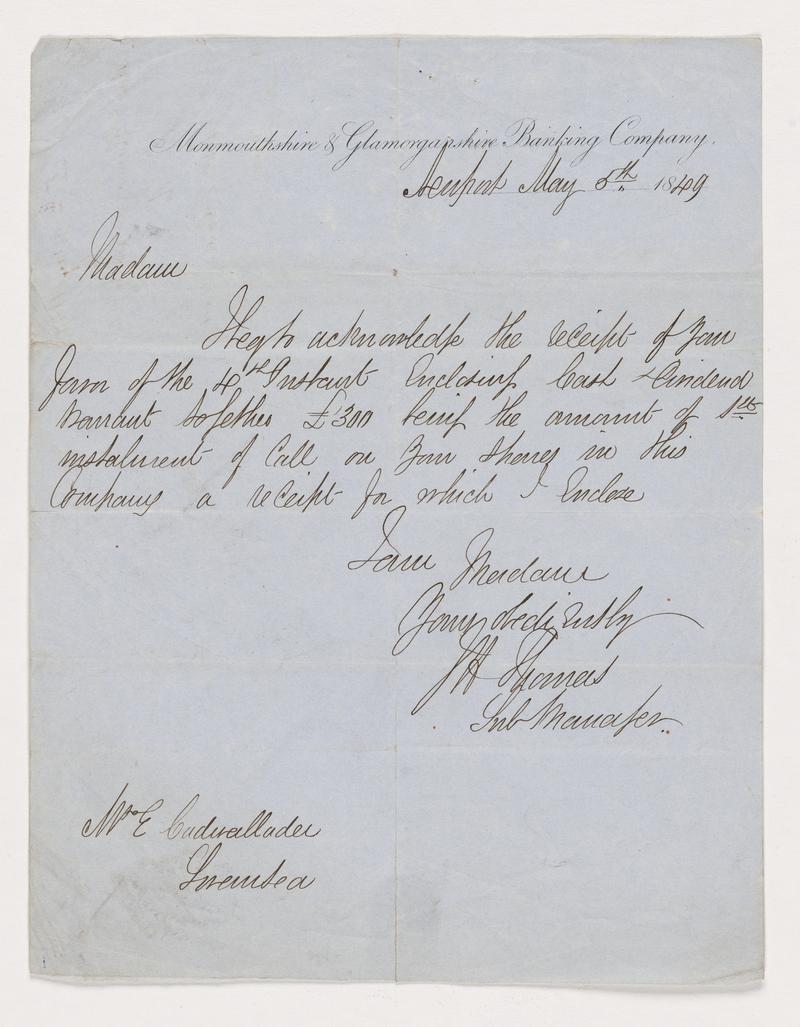 Monmouthshire & Glamorganshire Banking Company.
Newport May 5th 1849
Madam
I beg to acknowledge the receipt of your
favor of the 4th Instant Enclosing Cash & Dividend
Warrant together £300 being the amount of 1st
instalment of Call on your shares in this
Company a receipt for which I Enclose
I am Madam
Your obediently
JH Thomas
Sub Manager.
Mrs E Cadwallader
Swansea